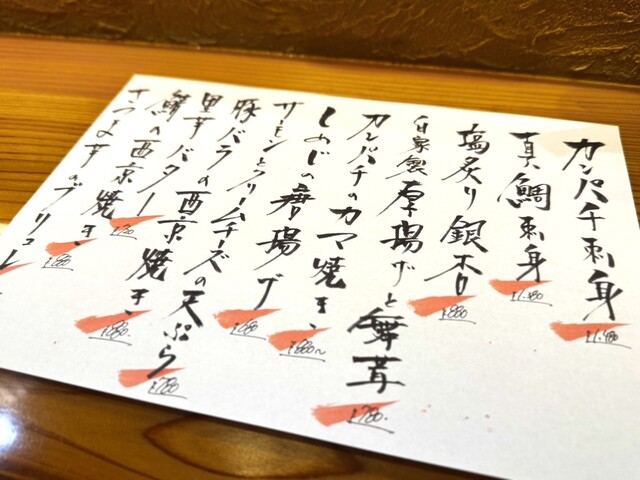 カンパチ刺身
¥1.480
真鯛刺身
¥1.480
塩炙り銀杏
¥880
自家製厚揚げと舞茸
¥780.
カンパチのカマ焼き、
¥880〜
しめじの唐揚げ
サーモンとクリームチーズの天ぷら
¥780
豚バラの西京焼き、
里芋バター
鰆の西京焼き、
さつま芋のブリュレ